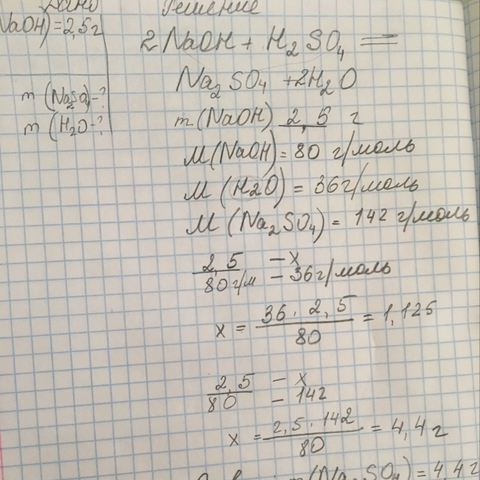 Дано
NaOH) = 2,5 г
m (Na₂SO₄)-?
m (H₂O-?
Решение
2 NaOH + H₂SO₄ =
Na₂SO₄ + 2H₂O
m (NaOH) 2,5 г
M (NaOH) = 80 г/моль
M (H2O) = 36 г/моль
M (Na₂SO₄) = 142 г/моль
2,5 – x
80 г/м – 36 г/моль
x = 36 · 2,5 / 80 = 1,125
2,5 – x
80 – 142
x = 2,5 · 142 / 80 = 4,4 г
m (Na₂SO₄) = 4,4 г